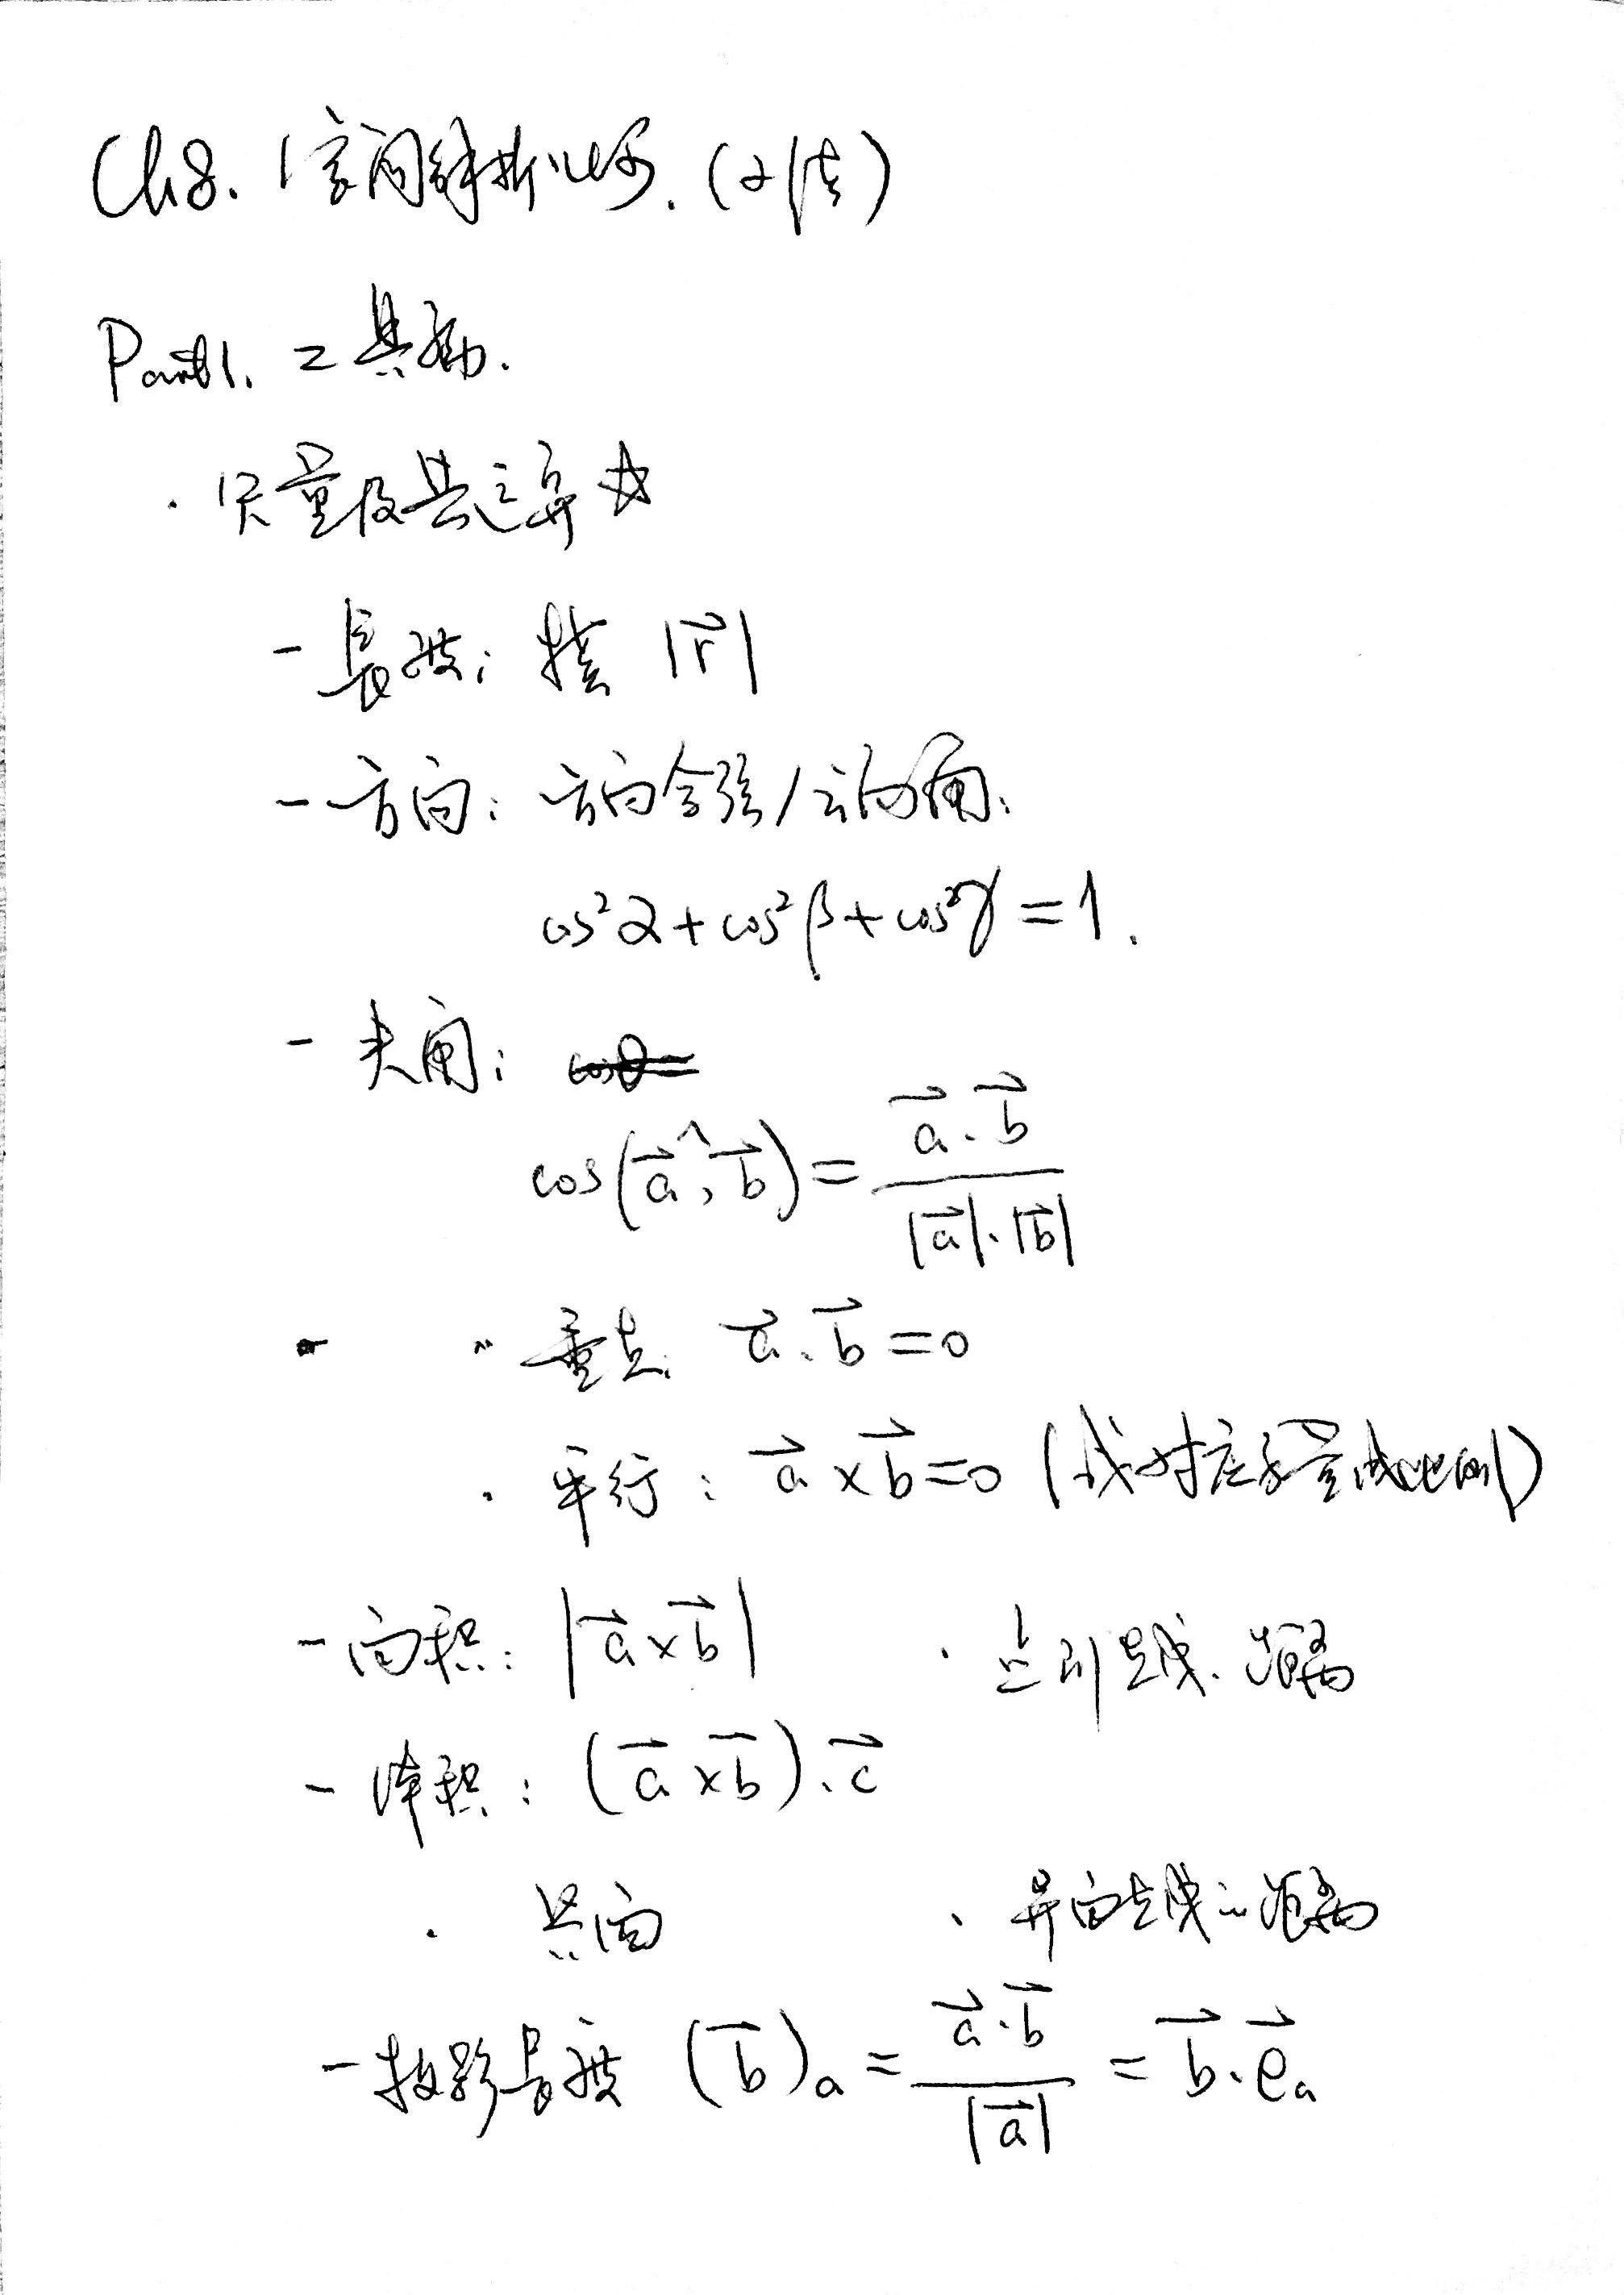 Ch8. 空间解析几何. (2/法)
Part1. 工具箱.
· 向量及其运算 ☆
- 長度: 模 |r⃗|
- 方向: 方向余弦/方向角:
cos²α + cos²β + cos²γ = 1.
- 夹角:
cos(a⃗^, b⃗) = a⃗·b⃗ / |a⃗|·|b⃗|
· 垂直: a⃗·b⃗ = 0
· 平行: a⃗×b⃗ = 0 (或对应分量成比例)
- 面积: |a⃗×b⃗| · 点到直线距离
- 体积: (a⃗×b⃗)·c⃗
· 共面 · 异面直线的距离
- 投影長度 (b⃗)ₐ = a⃗·b⃗ / |a⃗| = b⃗·e⃗ₐ